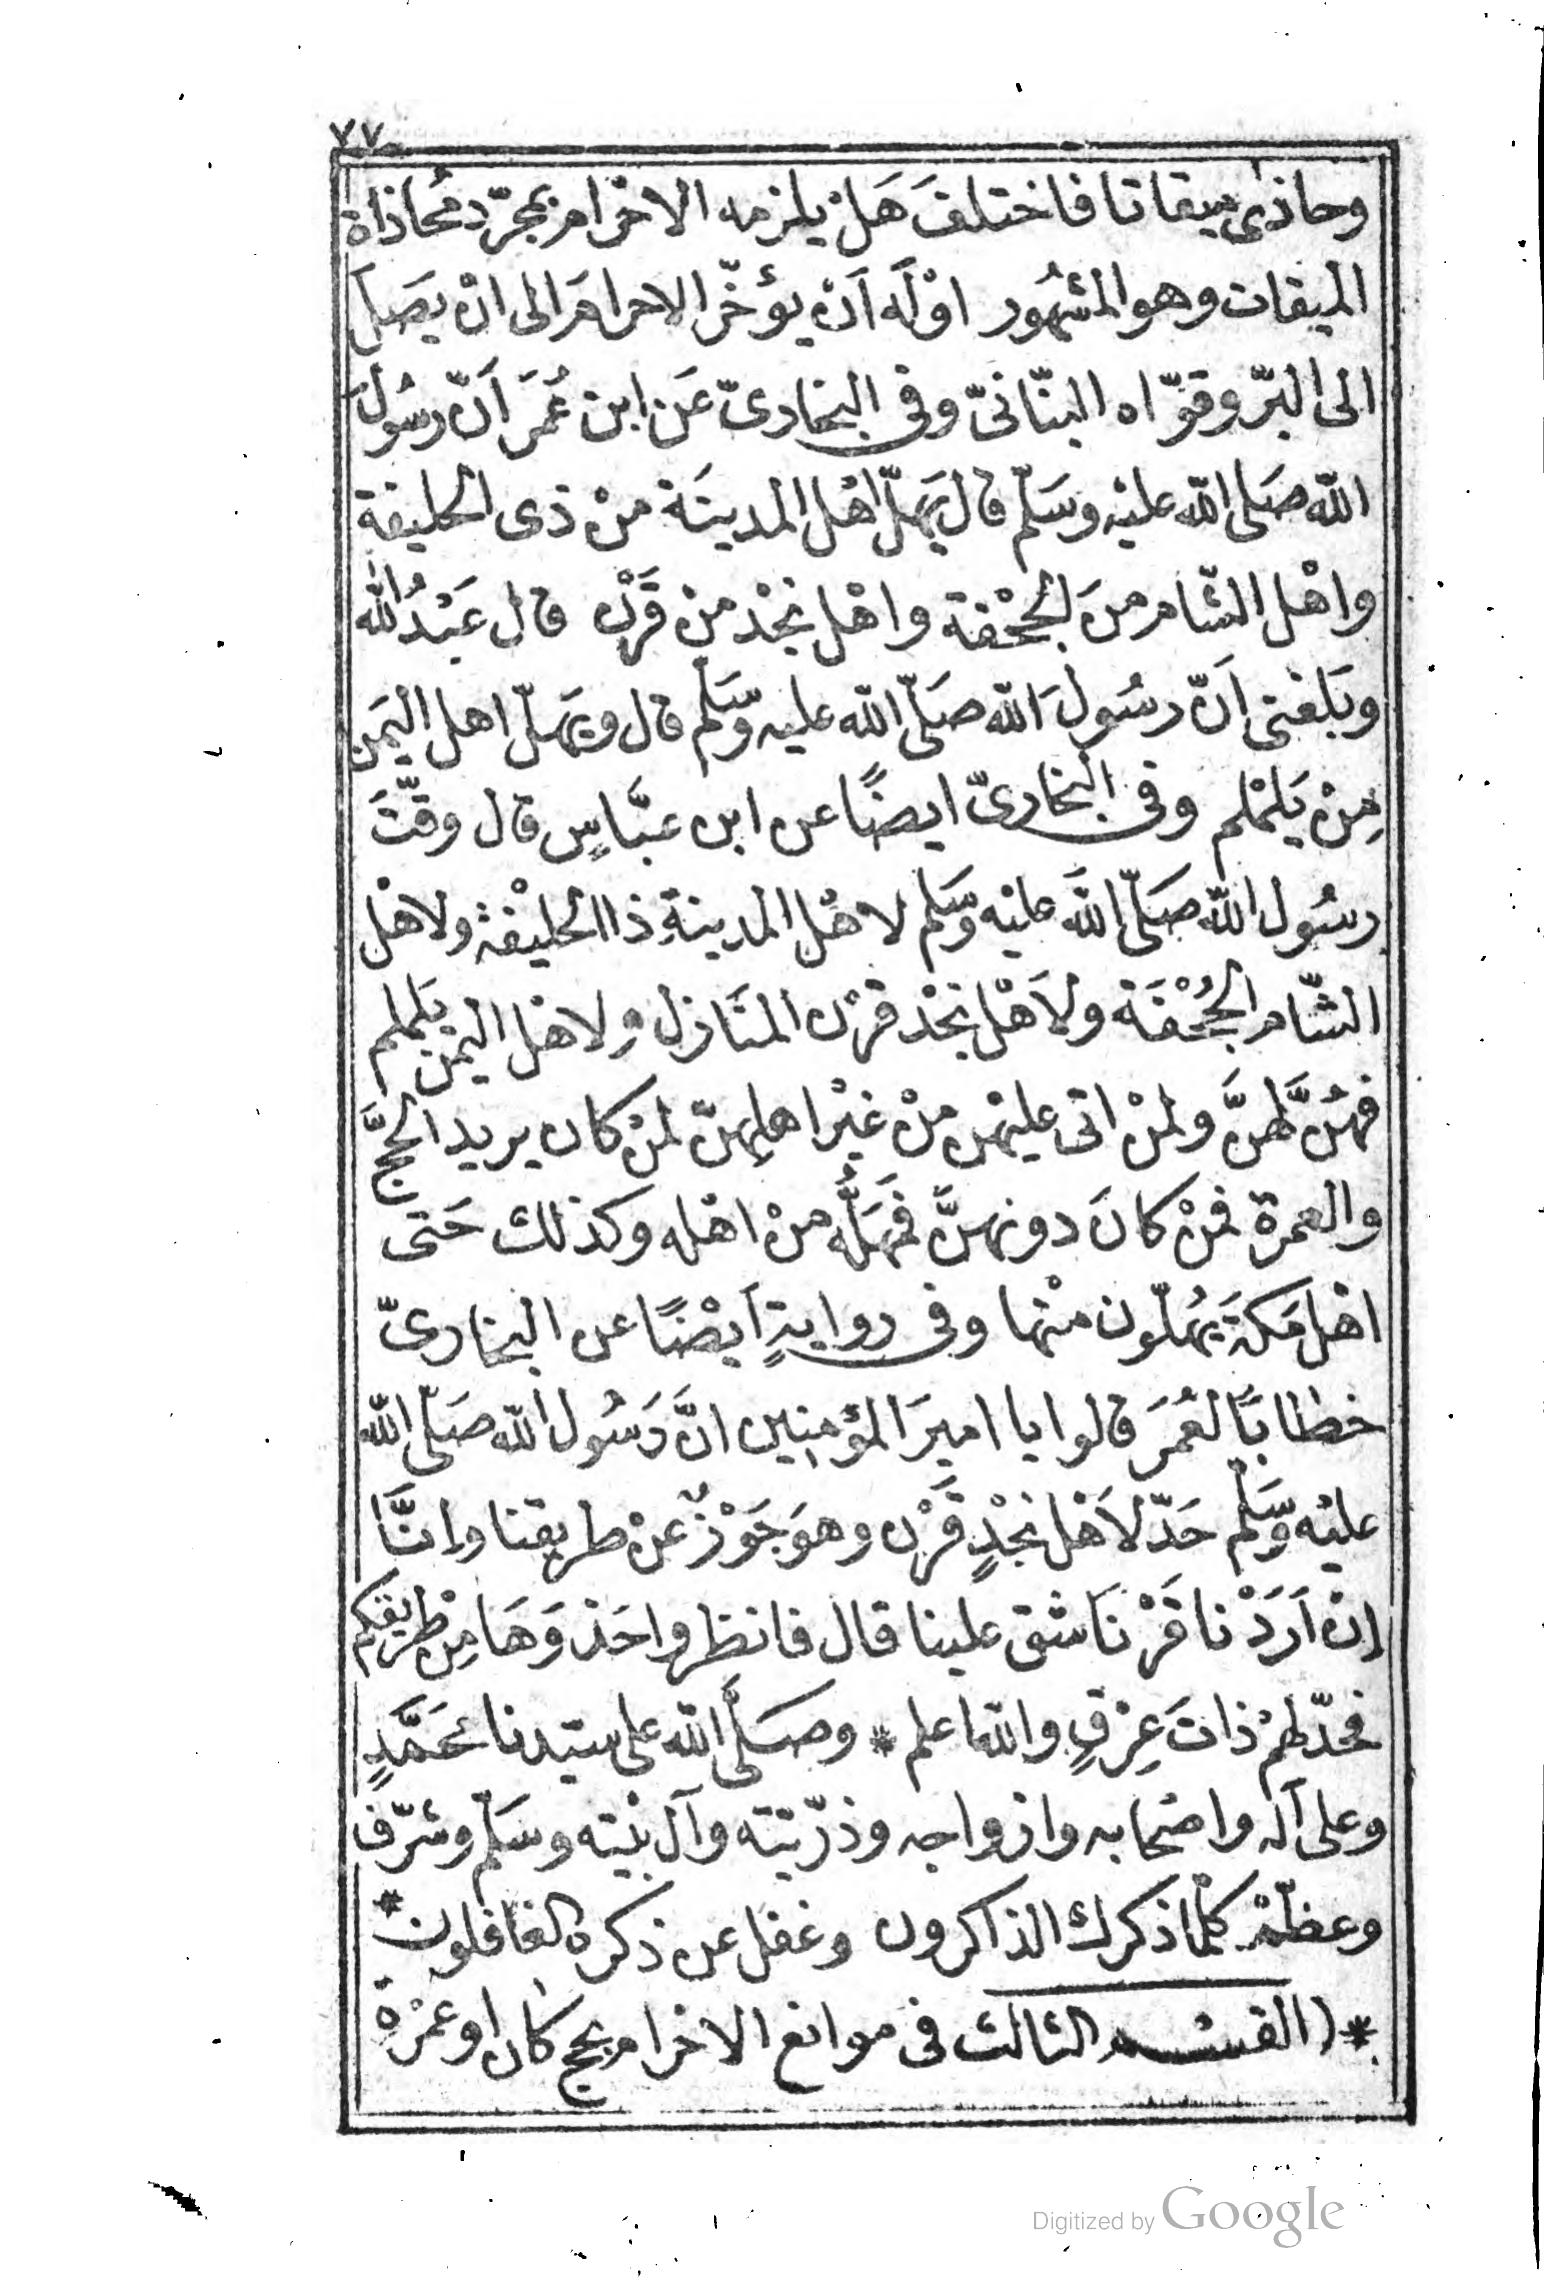 ٧٧
وحاذى ميقاتا فاختلفَ هَلْ يلزمه الاحْرام بمجرّد مُحاذاة
الميقات وهو المشهُور اوْلَه اَنْ يؤخّر الاحرامَ الى انْ يصَلَ
الى البرّ وقوّاه البنّانىّ وفى البخارىّ عَن ابن عُمَر اَنّ رسُولَ
اللّه صَلى اللّه عليْه وسَلّم قال يَهلّ اهْل المدينَة منْ ذى الحليفة
واهْل الشّام منَ الجُحْفة واهْل نجْد من قَرْن قال عَبْدُ اللّه
وبَلغنى اَنّ رسُولَ اللّه صَلّى اللّه عليه وَسَّلم قال ويَهلّ اهل اليَمن
مِنْ يَلمْلم وفى البخارىّ ايضًا عن ابن عبَّاسٍ قال وقَّتَ
رسُول اللّه صَلّى اللّه عليْه وَسَلم لاهْل المدينةِ ذا الحليْفة ولاهْل
الشّام الجُحْفَة ولاَهْل نجْد قرْن المنَازل ولاهْل اليمَن يَلملم
فهُنَّ لهنَّ ولمنْ اتى عليْهن منْ غيْر اهلِهنّ لمنْ كان يريد الحجَّ
والعمرة فمنْ كانَ دونهنَّ فمَهَلُّه منْ اهْله وكذلك حَتى
اهْل مَكةَ يَهُلّون منْها وفى روايةٍ اَيْضًا عن البخارىّ
خطابًا لعُمَرَ قالوا يا اميرَ المؤمنِين انَّ رَسُول اللّه صَلّى اللّه
عليْه وَسَّلم حَدّ لاَهْل نجْدٍ قَرْن وهوَ جَوْرٌ عَنْ طريقنا واِنَّا
اِنْ اَرَدْنا قَرْنَا شق علينا قال فانظروا حَذوَهَا مِنْ طريقكم
فحَدّ لهمْ ذاتَ عِرْقٍ واللّه اعلم * وصَلَّى اللّه على سيّدنا محَمَّدٍ
وعلى آله واصْحابه وازواجه وذرّيته وآل بيْته وسَلّم وشرّف
وعظّمْ كلّما ذكرك الذاكرون وغفل عن ذكره الغافلون *
*( القسم الثالث فى موانع الاحْرام بحج كان او عمْرة
Digitized by Google